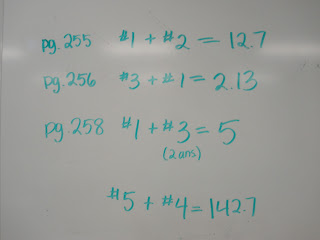 pg. 255 #1 + #2 = 12.7
pg. 256 #3 + #1 = 2.13
pg. 258 #1 + #3 = 5
(2 ans)
#5 + #4 = 142.7